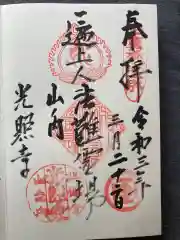 奉拝
令和三年
三月二十二日
一遍上人法難霊場
山内
光照寺